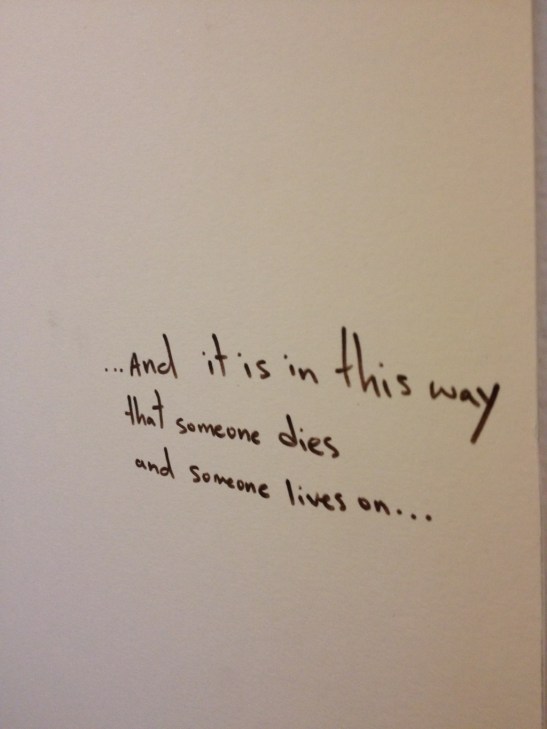 ...And it is in this way
that someone dies
and someone lives on...